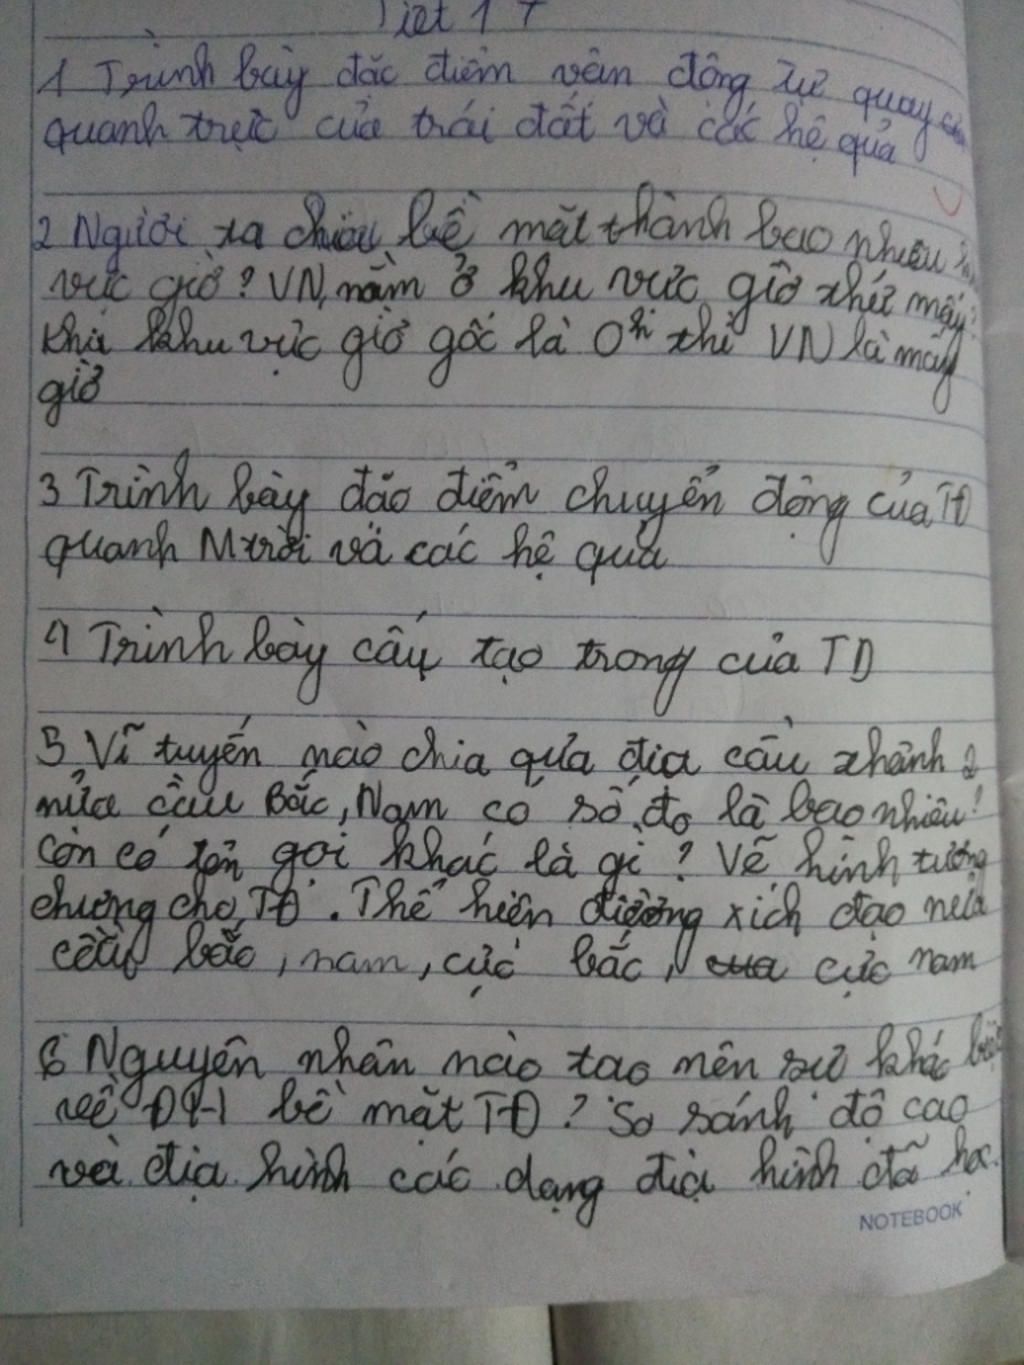 Tiết 17
1 Trình bày đặc điểm vận động tự quay
quanh trục của trái đất và các hệ quả
2 Người ta chia bề mặt thành bao nhiêu
vực giờ? VN nằm ở khu vực giờ thứ mấy?
khi khu vực giờ gốc là 0h thì VN là mấy
giờ
3 Trình bày đăo điểm chuyển động của TĐ
quanh Mtrời và các hệ quả
4 Trình bày cấu tạo trong của TĐ
5 Vĩ tuyến nào chia qủa địa cầu thành 2
nửa cầu Bắc, Nam có số đo là bao nhiêu?
còn có tên gọi khác là gì? Vẽ hình tượng
chưng cho TĐ. Thể hiện đường xích đạo nửa
cầu bắc, nam, cực bắc, cực nam
6 Nguyên nhân nào tạo nên sự khác biệt
về ĐH bề mặt TĐ? So sánh độ cao
và địa hình các dạng địa hình đã học.
NOTEBOOK